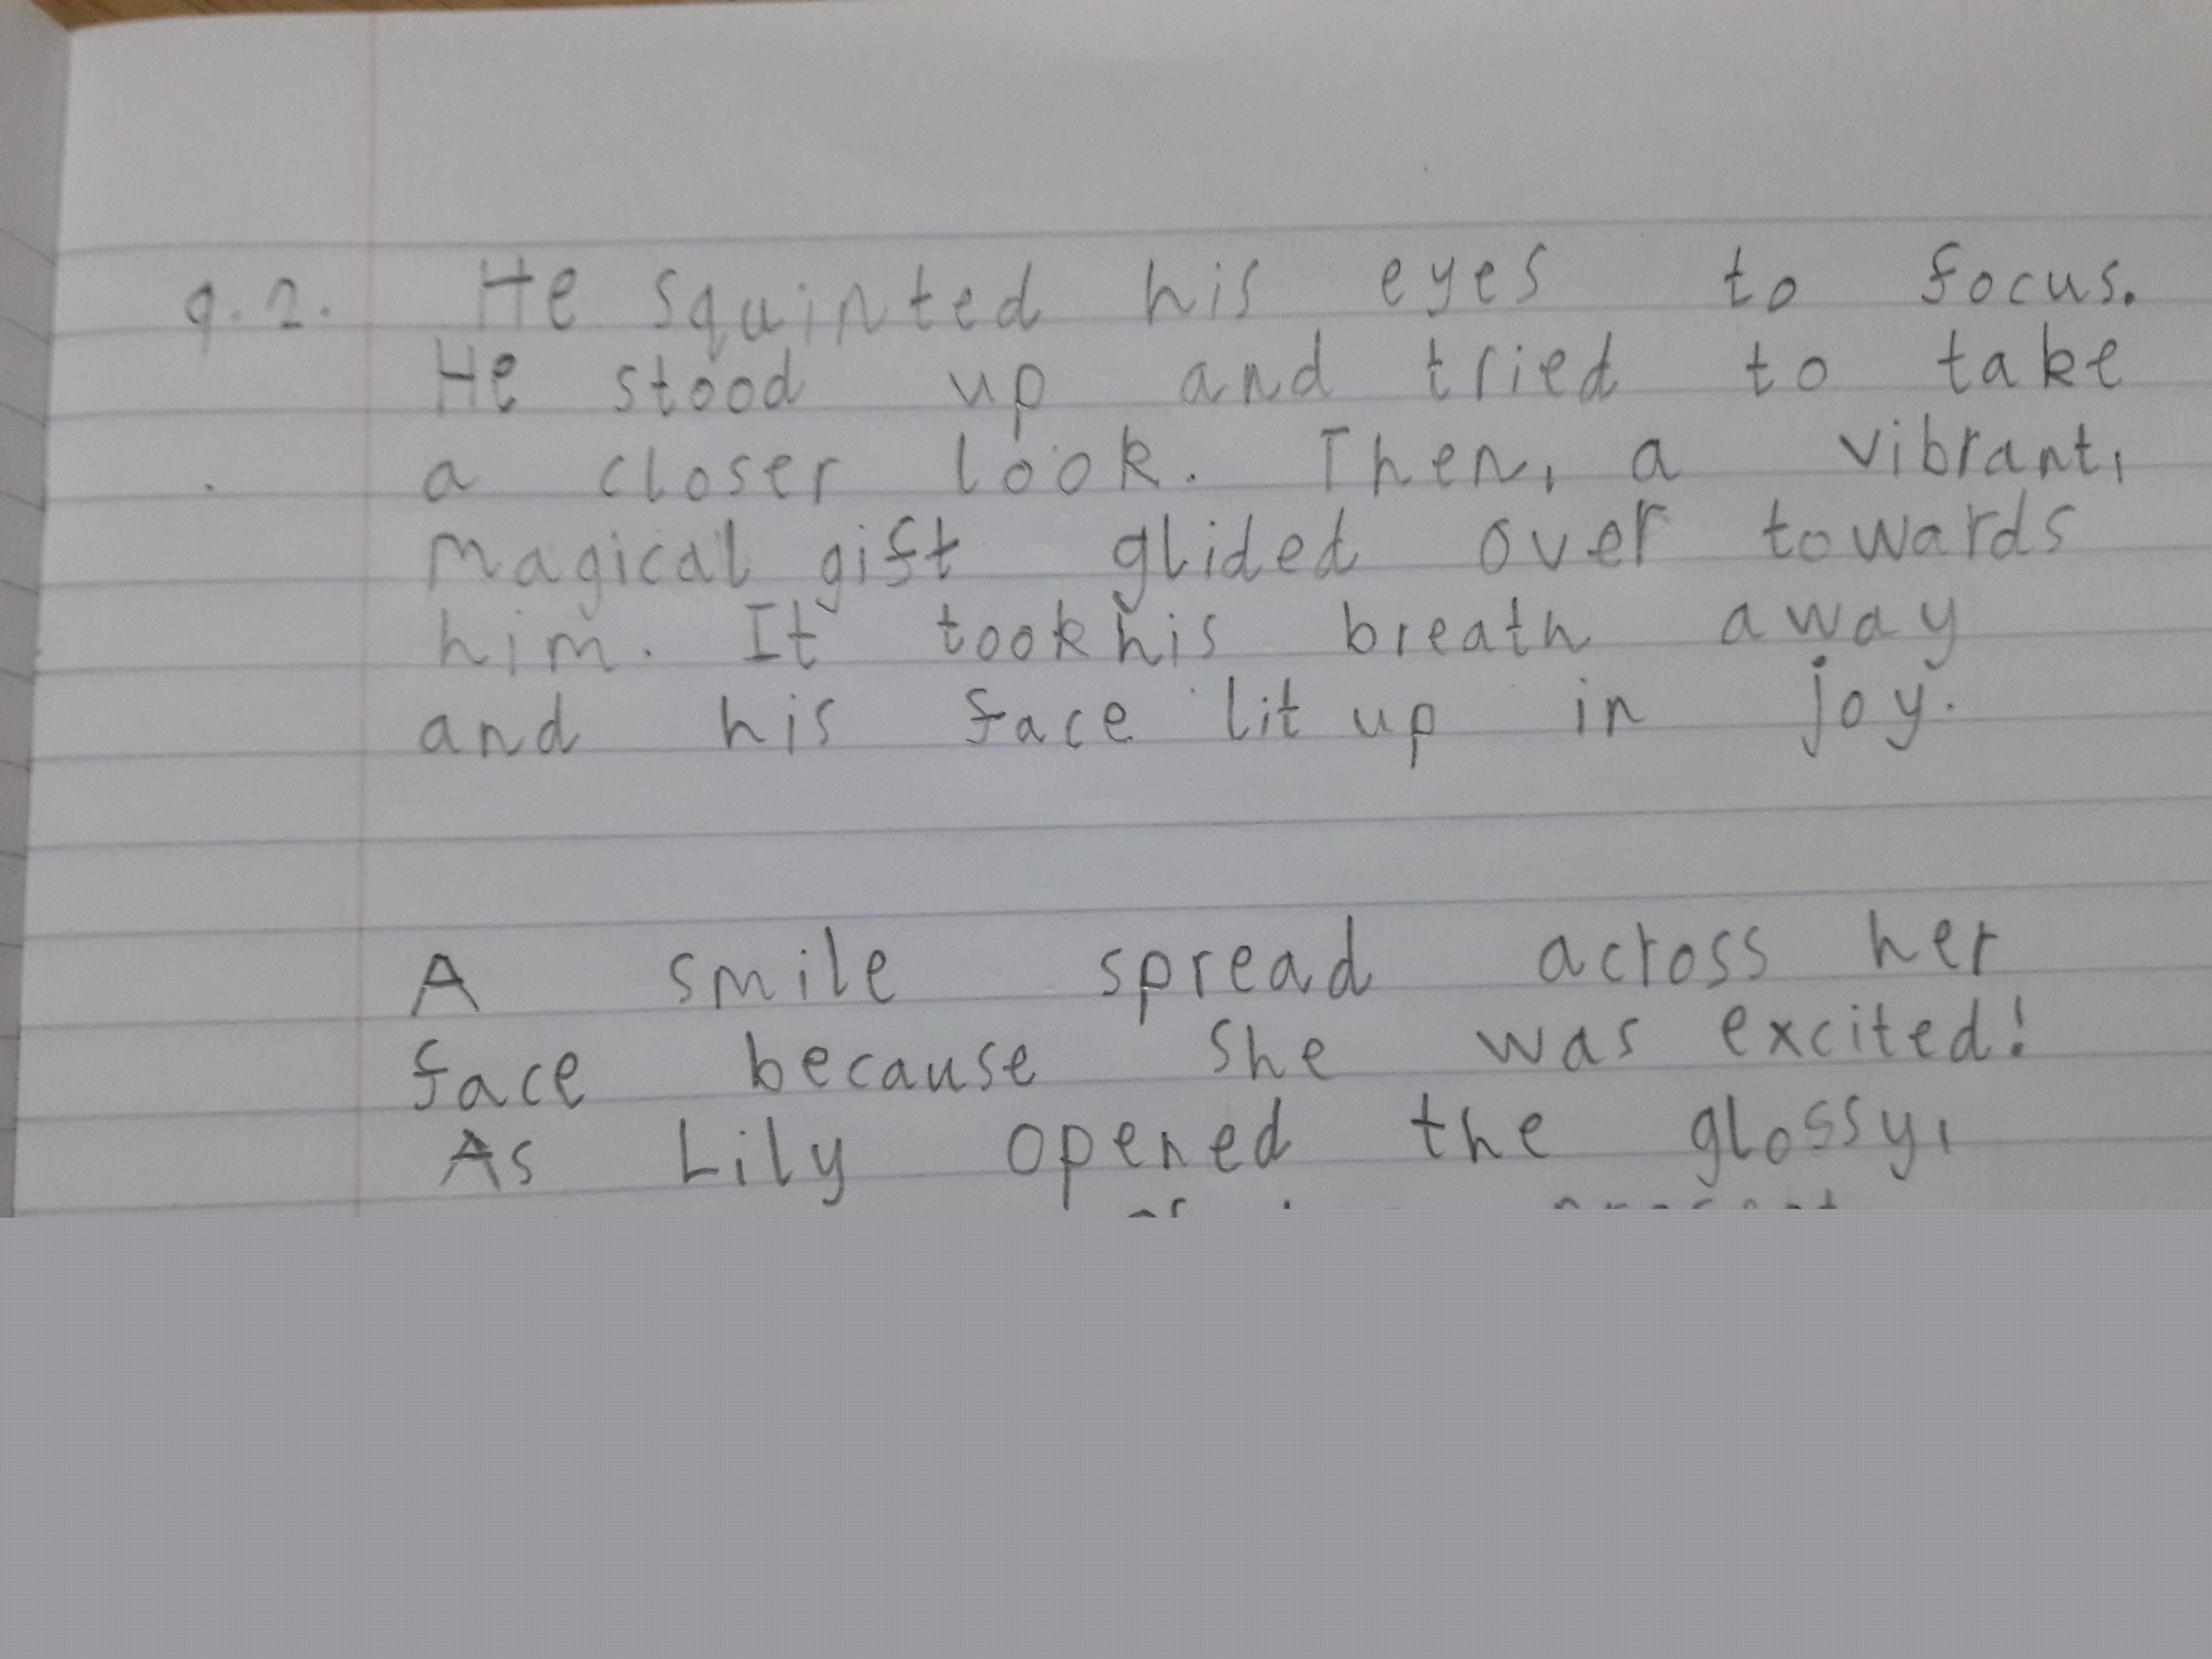 q.2. He squinted his eyes to focus.
He stood up and tried to take
a closer look. Then, a vibrant,
magical gift glided over towards
him. It took his breath away
and his face lit up in joy.
A smile spread across her
face because she was excited!
As Lily opened the glossy,